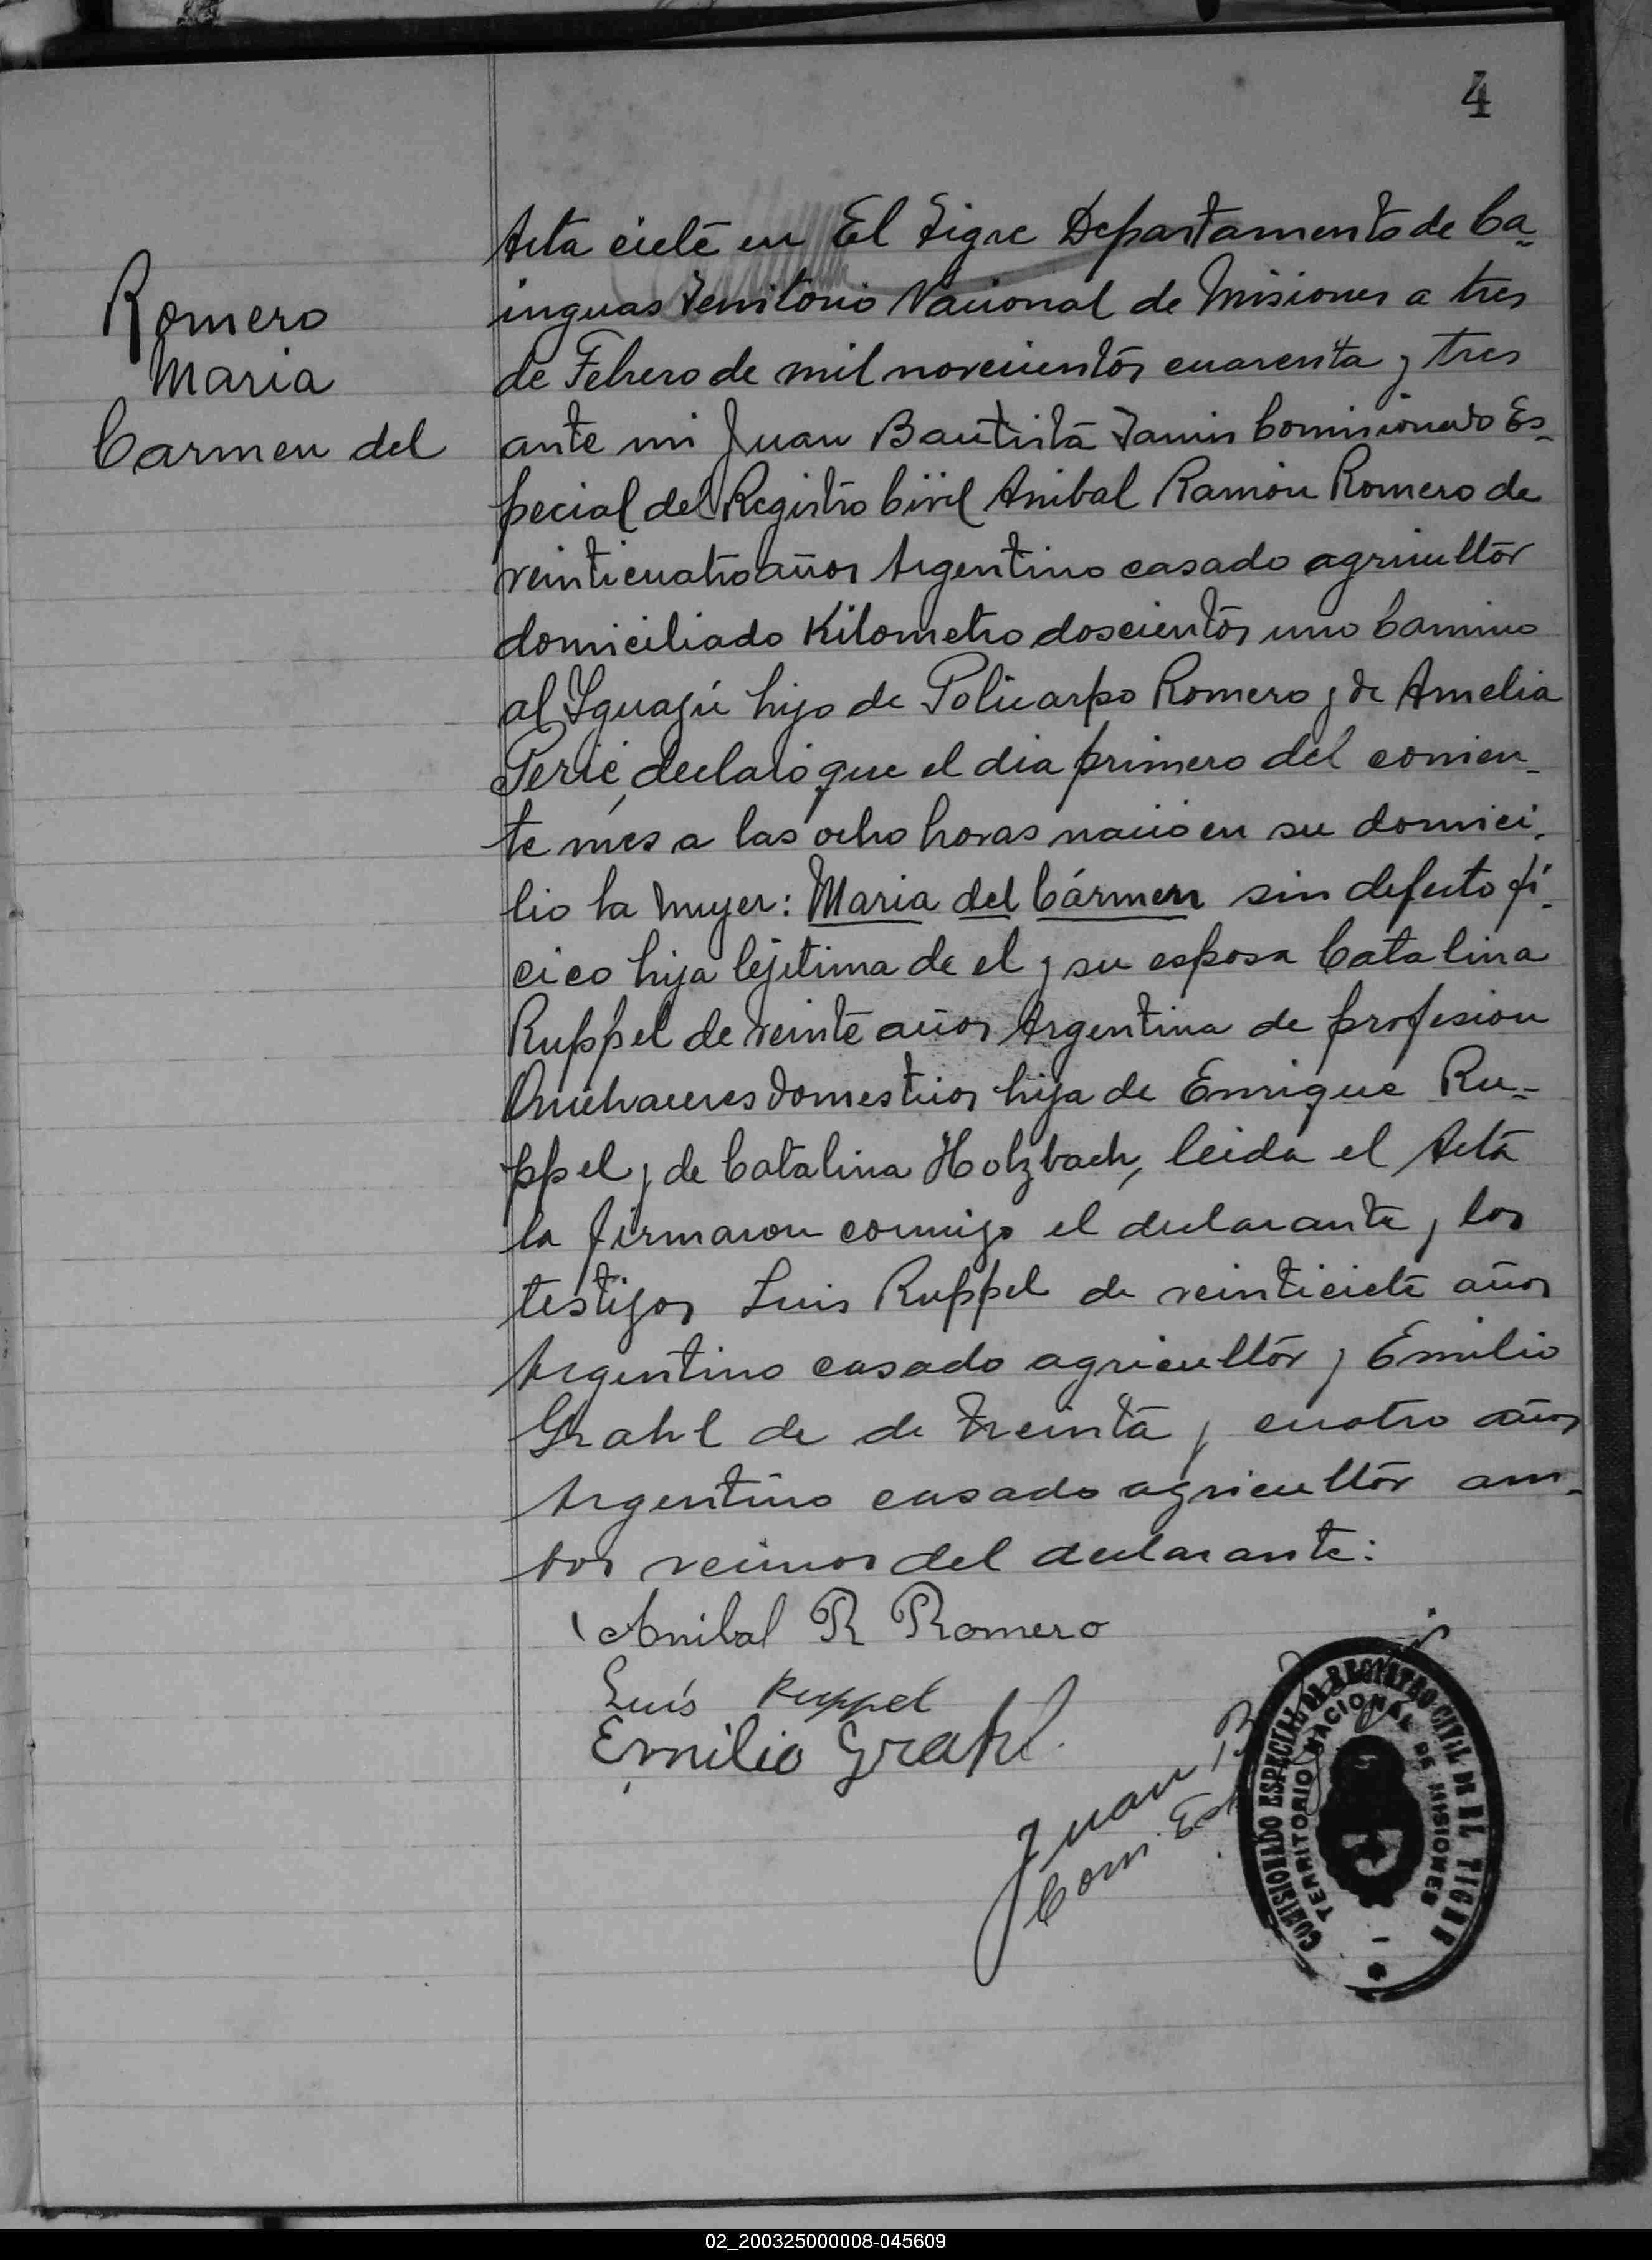 4
Romero
Maria
Carmen del
Acta ciete en El Tigre Departamento de Ca-
inguas Territorio Nacional de Misiones a tres
de Febrero de mil novecientos cuarenta y tres
ante mi Juan Bautista Comisionado Es-
pecial del Registro Civil Anibal Ramón Romero de
veinticuatro años Argentino casado agricultor
domiciliado Kilometro doscientos uno Camino
al Yguazú hijo de Policarpo Romero y de Amelia
declaró que el dia primero del corrien-
te mes a las ocho horas nació en su domici-
lio la Mujer: Maria del Cármen sin defecto fi-
cico hija lejitima de el y su esposa Catalina
Ruppel de veinte años Argentina de profesion
Quehaceres domesticos hija de Enrique Ru-
ppel y de Catalina Holzbach, leida el Acta
la firmaron conmigo el declarante y los
testigos Luis Ruppel de veinticiete años
Argentino casado agricultor y Emilio
Grahl de de treinta y cuatro años
Argentino casado agricultor am-
bos vecinos del declarante:
Anibal R Romero
Luís Ruppel
Emilio Grahl.
Juan B
Com. Esp
COMISIONADO ESPECIAL DE REGISTRO CIVIL DE EL TIGRE
TERRITORIO NACIONAL DE MISIONES
02_200325000008-045609